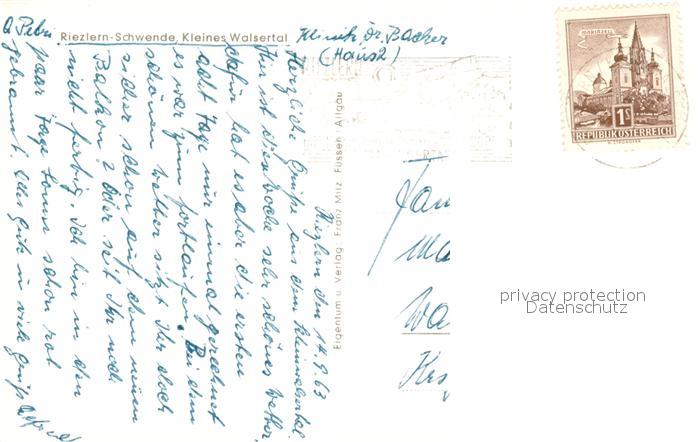 Riezlern-Schwende, Kleines Walsertal
Klinik Dr. Bacher
(Haus 2)
Riezlern den 14.9.63
Herzliche Grüße aus dem Kleinwalsertal.
Hier ist diese Woche sehr schönes Wetter,
dafür hat es aber die ersten
acht Tage nur einmal geregnet
es war zum fortlaufen. Bei dem
schönen Wetter sitzt Ihr doch
sicher schon auf dem neuen
Balkon? Oder seit Ihr noch
nicht fertig. Ich bin in den
paar Tage schon rot
gebrannt. Alles Gute u. viele Grüße
Eigentum u. Verlag Franz Milz Füssen Allgäu
MARIAZELL
1S
REPUBLIK ÖSTERREICH
Fam
Wa
Krs
privacy protection
Datenschutz